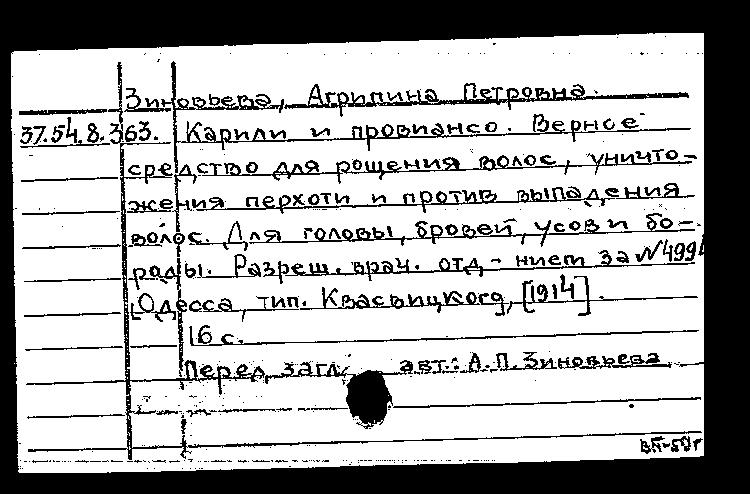 Зиновьева, Агрипина Петровна.
37.54.8.363. Карили и провиансо. Верное
средство для рощения волос, уничто-
жения перхоти и против выпадения
волос. Для головы, бровей, усов и бо-
роды. Разреш. врач. отд-нием за №
[Одесса, тип. Квасвицкого], [1914].
16 с.
Перед загл. авт.: А.П. Зиновьева